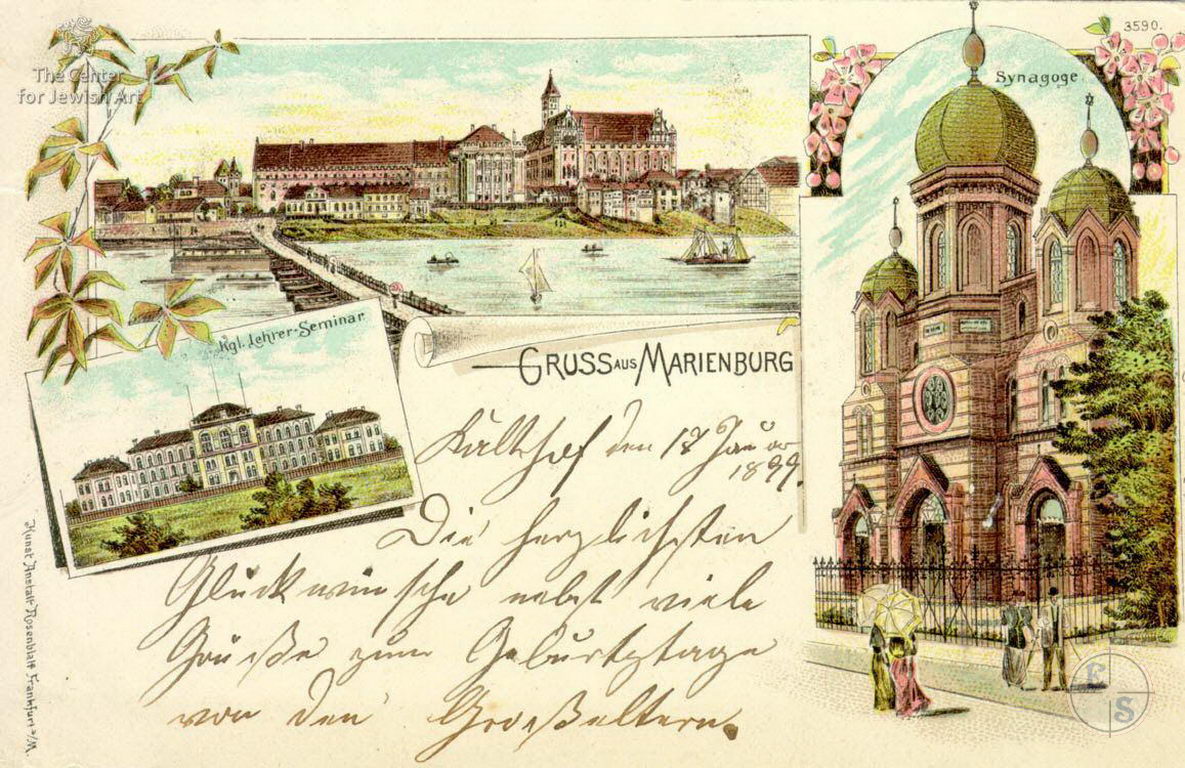 The Center
for Jewish Art
3590.
Synagoge
Kgl. Lehrer-Seminar
GRUSS AUS MARIENBURG
Kalthof den 17 Januar
1899.
Die herzlichsten
Glückwünsche nebst viele
Grüße zum Geburtstage
von den Großeltern.
Kunst Anstalt Rosenblatt Frankfurt a/M.
ES